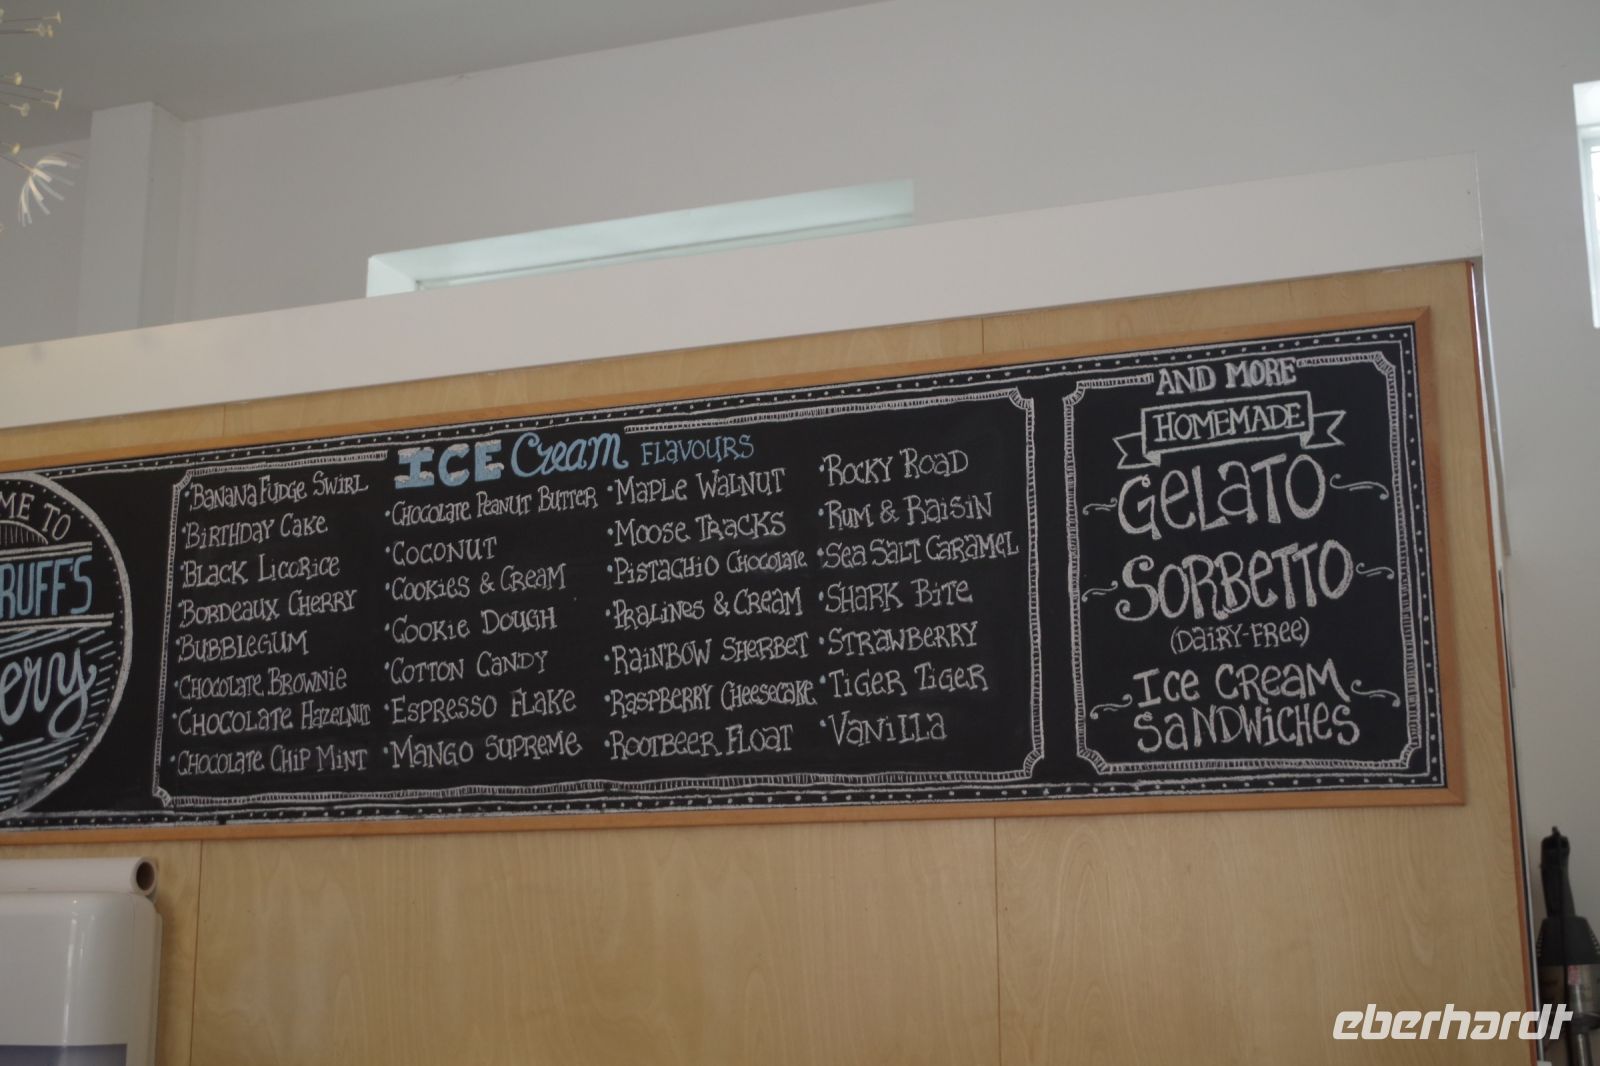 ME TO
RUFFS
ery
ICE Cream FLAVOURS
·BANANA FUDGE SWIRL
·BIRTHDAY CAKE
·BLACK LICORICE
·BORDEAUX CHERRY
·BUBBLEGUM
·CHOCOLATE BROWNIE
·CHOCOLATE HAZELNUT
·CHOCOLATE CHIP MINT
·CHOCOLATE PEANUT BUTTER
·COCONUT
·COOKIES & CREAM
·COOKIE DOUGH
·COTTON CANDY
·ESPRESSO FLAKE
·MANGO SUPREME
·MAPLE WALNUT
·MOOSE TRACKS
·PISTACHIO CHOCOLATE
·PRALINES & CREAM
·RAINBOW SHERBET
·RASPBERRY CHEESECAKE
·ROOTBEER FLOAT
·ROCKY ROAD
·RUM & RAISIN
·SEA SALT CARAMEL
·SHARK BITE
·STRAWBERRY
·TIGER TIGER
·VANILLA
AND MORE
HOMEMADE
GELATO
SORBETTO
(DAIRY-FREE)
ICE CREAM
SANDWICHES
eberhardt